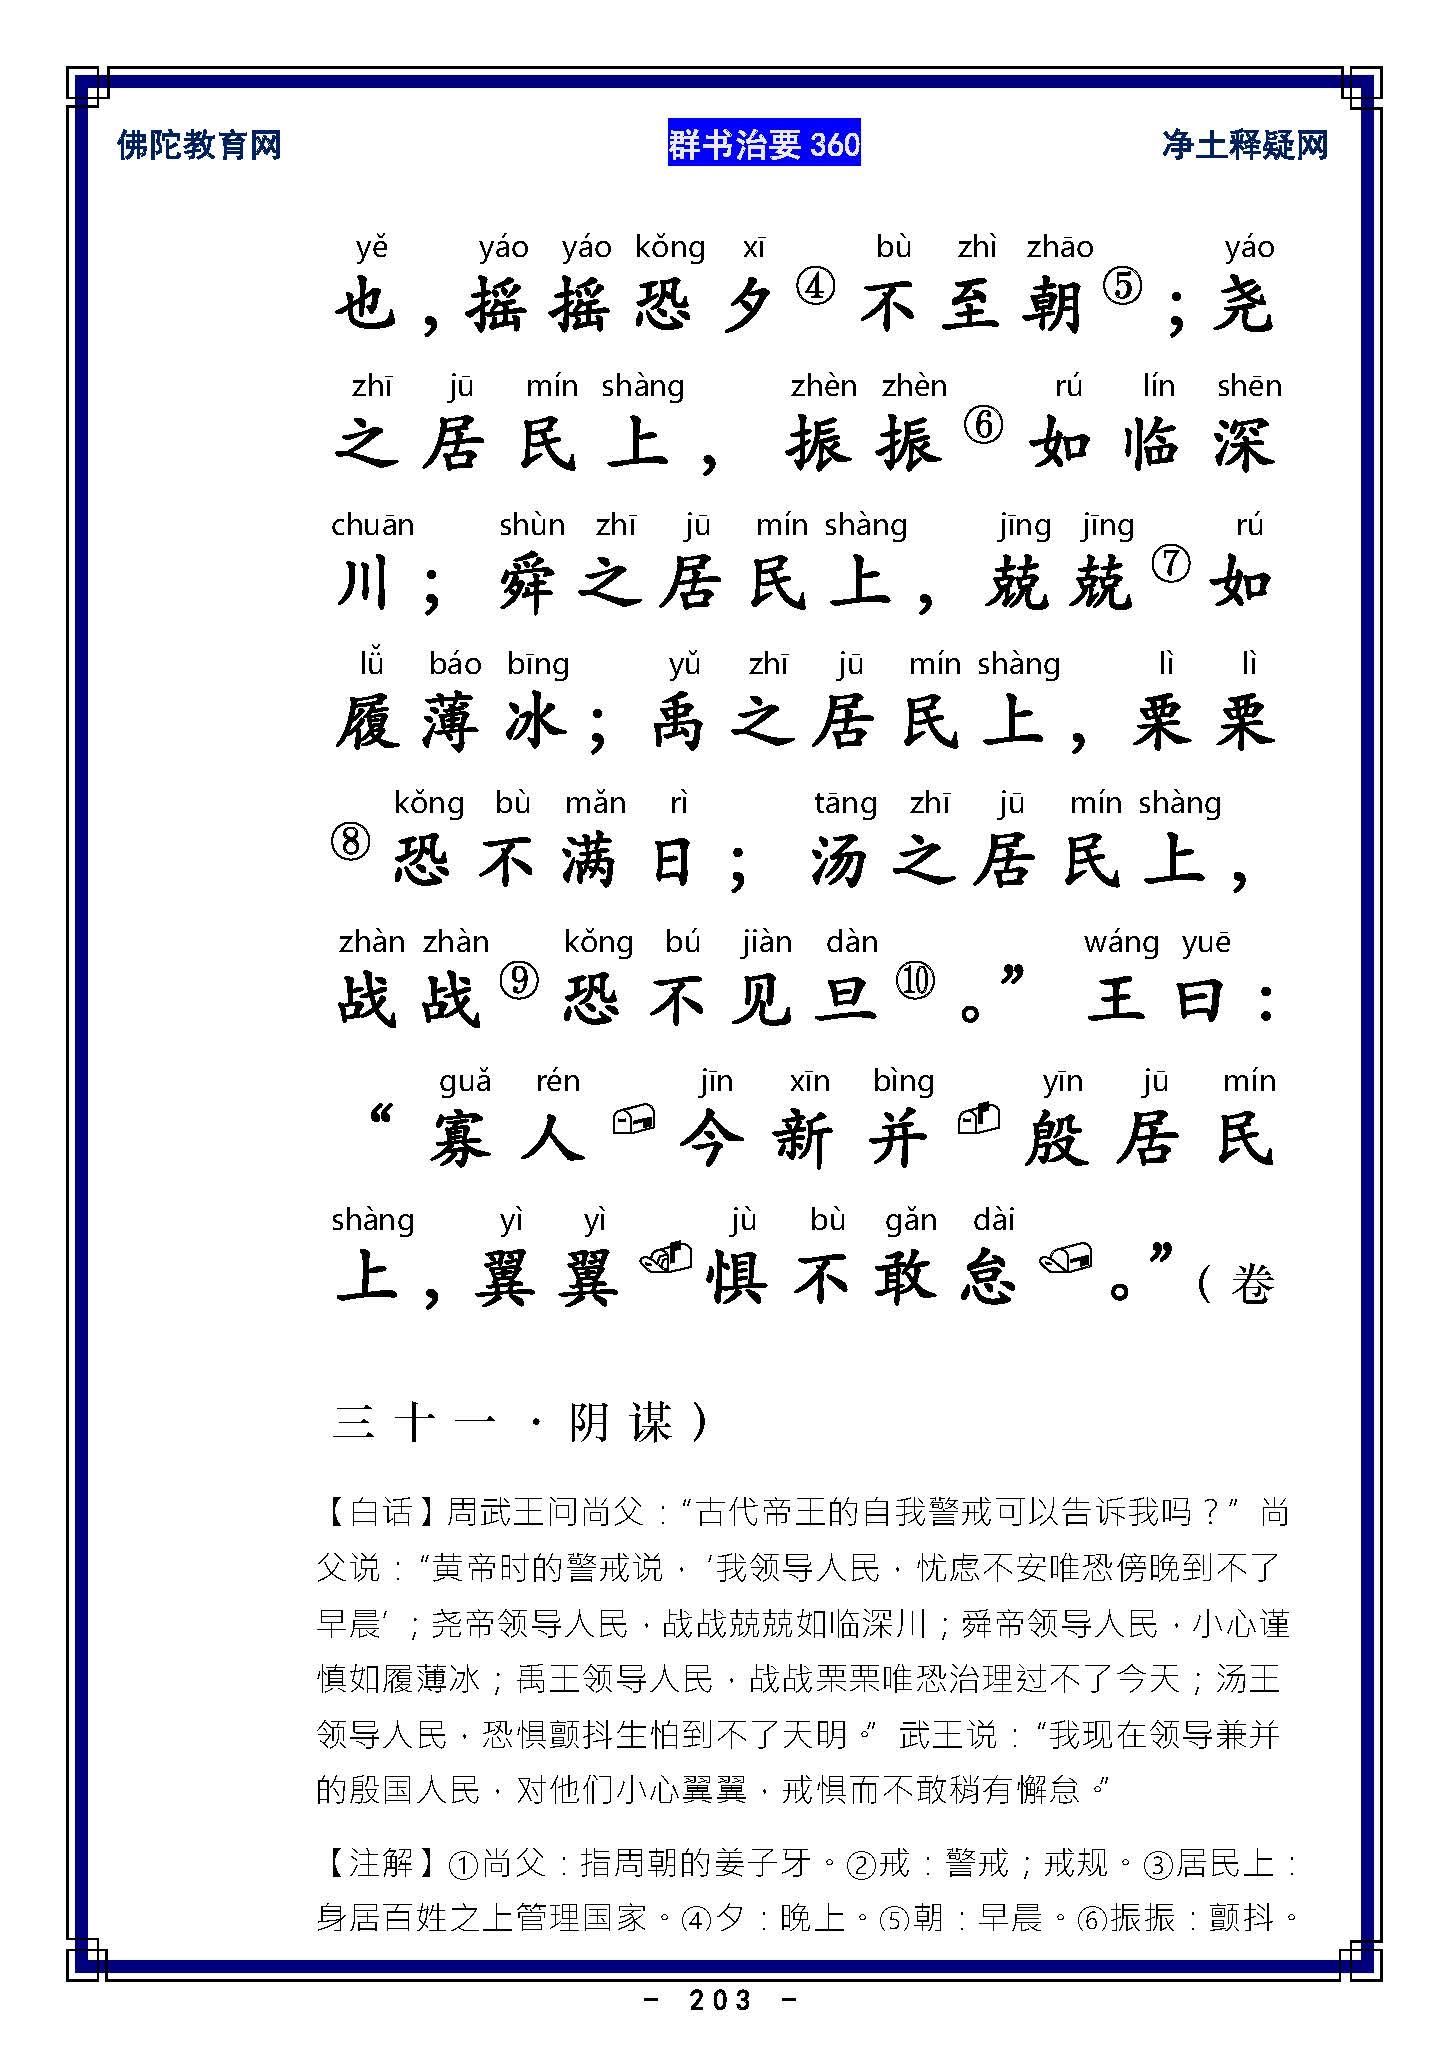 佛陀教育网 群书治要 360 净土释疑网
yě yáo yáo kǒng xī bù zhì zhāo yáo
也，摇摇恐夕④不至朝⑤；尧
zhī jū mín shàng zhèn zhèn rú lín shēn
之居民上，振振⑥如临深
chuān shùn zhī jū mín shàng jīng jīng rú
川；舜之居民上，兢兢⑦如
lǚ báo bīng yǔ zhī jū mín shàng lì lì
履薄冰；禹之居民上，栗栗
kǒng bù mǎn rì tāng zhī jū mín shàng
⑧恐不满日；汤之居民上，
zhàn zhàn kǒng bú jiàn dàn wáng yuē
战战⑨恐不见旦⑩。”王曰：
guǎ rén jīn xīn bìng yīn jū mín
“寡人今新并殷居民
shàng yì yì jù bù gǎn dài
上，翼翼惧不敢怠。”（卷
三十一·阴谋）
【白话】周武王问尚父：“古代帝王的自我警戒可以告诉我吗？”尚
父说：“黄帝时的警戒说，‘我领导人民，忧虑不安唯恐傍晚到不了
早晨’；尧帝领导人民，战战兢兢如临深川；舜帝领导人民，小心谨
慎如履薄冰；禹王领导人民，战战栗栗唯恐治理过不了今天；汤王
领导人民，恐惧颤抖生怕到不了天明。”武王说：“我现在领导兼并
的殷国人民，对他们小心翼翼，戒惧而不敢稍有懈怠。”
【注解】①尚父：指周朝的姜子牙。②戒：警戒；戒规。③居民上：
身居百姓之上管理国家。④夕：晚上。⑤朝：早晨。⑥振振：颤抖。
- 203 -